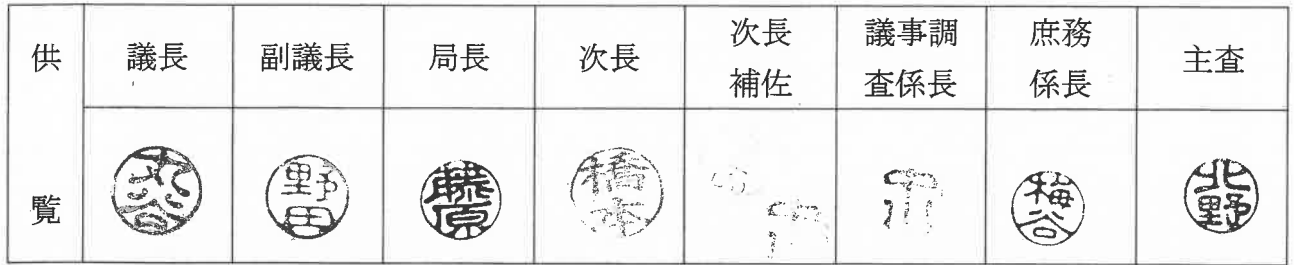 供覧
議長
副議長
局長
次長
次長
補佐
議事調
査係長
庶務
係長
主査
野田
藤原
橋本
梅谷
北野